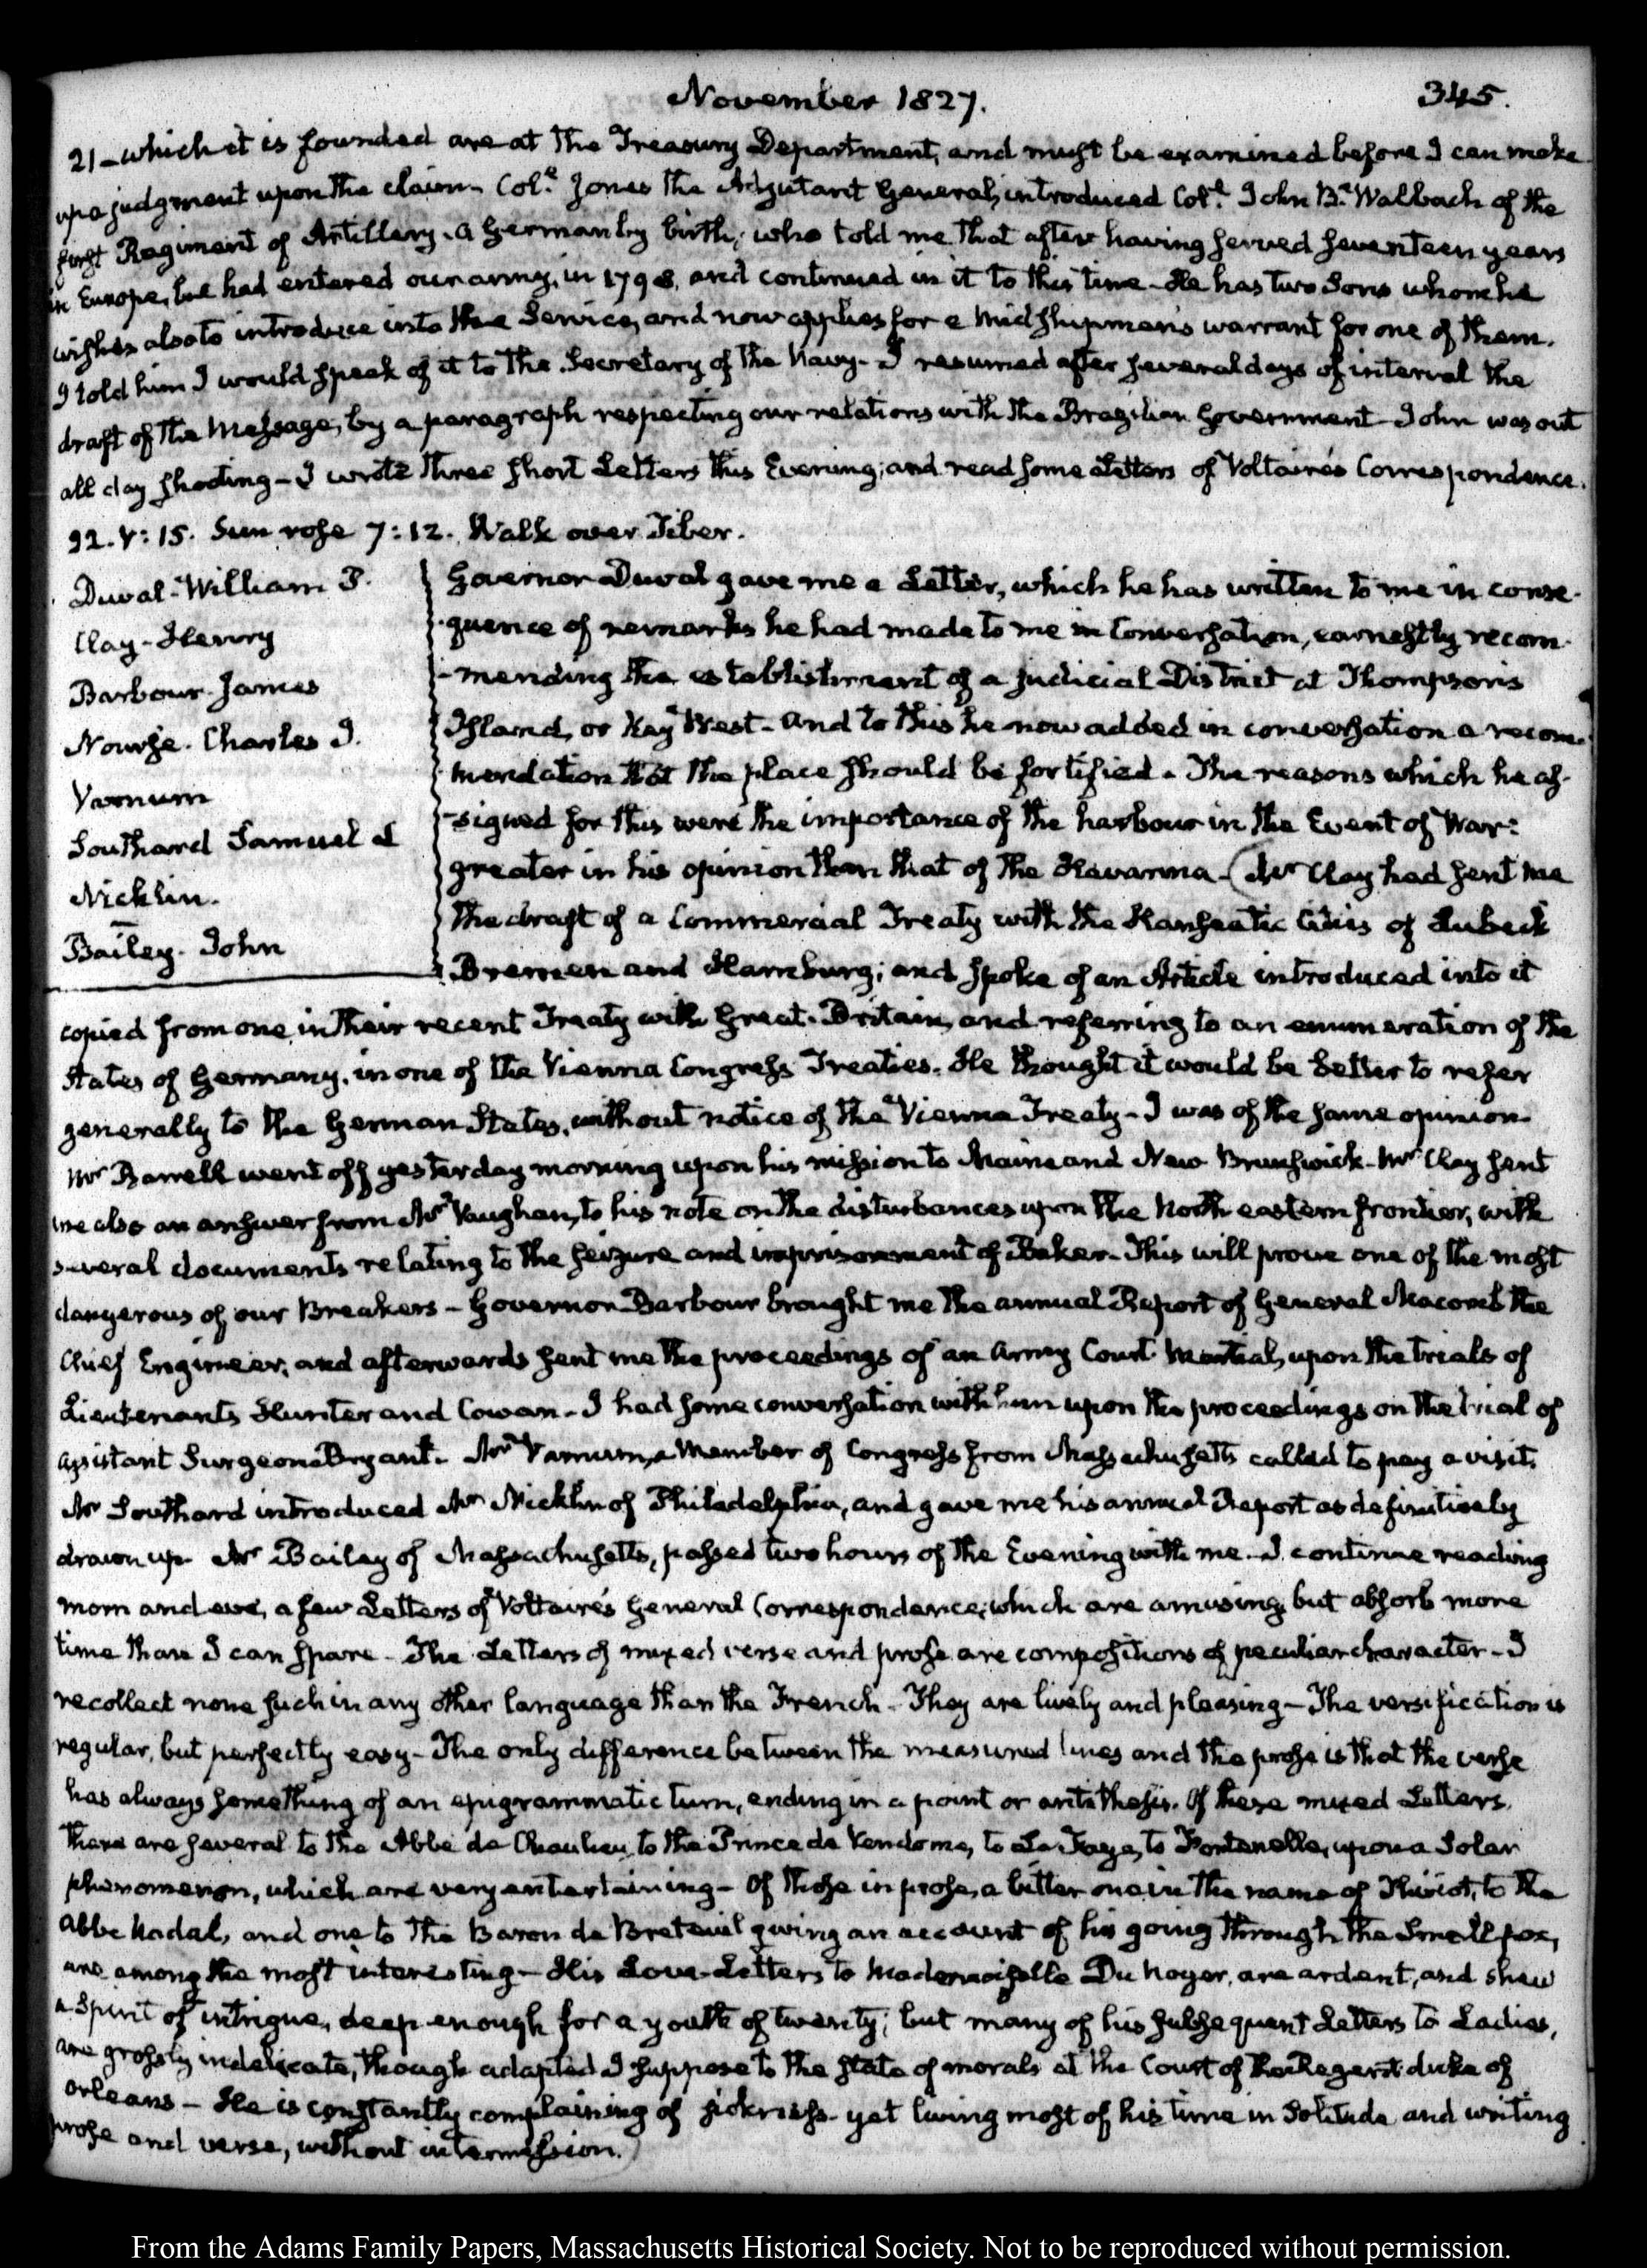 November 1827.
345.
21 - which it is founded are at the Treasury Department, and must be examined before I can make
up a judgment upon the claim - Col.l Jones the Adjutant General, introduced Col.l John B. Walbach of the
first Regiment of Artillery - a German by birth; who told me that after having served seventeen years
in Europe, he had entered our army, in 1798, and continued in it to this time - He has two Sons whom he
wishes also to introduce into the Service, and now applies for a Midshipman's warrant for one of them.
I told him I would speak of it to the Secretary of the Navy - I resumed after several days of interval the
draft of the Message, by a paragraph respecting our relations with the Brazilian Government - John was out
all day shooting - I wrote three short Letters this Evening; and read some Letters of Voltaire's Correspondence.
22. V: 15. Sun rose 7:12. Walk over Tiber.
Duval - William P.
Clay - Henry
Barbour - James
Nourse. Charles J.
Varnum
Southard Samuel L
Nicklin.
Bailey. John
Governor Duval gave me a Letter, which he has written to me in conse-
-quence of remarks he had made to me in Conversation, earnestly recom-
-mending the establishment of a judicial District at Thompson's
Island, or Key West - And to this he now added in conversation a recom-
-mendation that the place should be fortified. The reasons which he as-
-signed for this were the importance of the harbour in the Event of War:
greater in his opinion than that of the Havanna - (Mr Clay had sent me
the draft of a Commercial Treaty with the Hanseatic Cities of Lubeck
Bremen and Hamburg; and spoke of an Article introduced into it
copied from one in their recent Treaty with Great-Britain, and referring to an enumeration of the
States of Germany, in one of the Vienna Congress Treaties. He thought it would be better to refer
generally to the German States, without notice of the Vienna Treaty - I was of the same opinion
Mr Barrell went off yesterday morning upon his mission to Maine and New Brunswick - Mr Clay sent
me also an answer from Mr Vaughan, to his note on the disturbances upon the North eastern frontier, with
several documents relating to the seizure and imprisonment of Baker - This will prove one of the most
dangerous of our Breakers - Governor Barbour brought me the annual Report of General Macomb the
Chief Engineer, and afterwards sent me the proceedings of an Army Court Martial, upon the trials of
Lieutenants Hunter and Cowan - I had some conversation with him upon the proceedings on the trial of
assistant Surgeon Bryant - Mr Varnum, a Member of Congress from Massachusetts called to pay a visit.
Mr Southard introduced Mr Nicklin of Philadelphia, and gave me his annual Report as definitively
drawn up - Mr Bailey of Massachusetts, passed two hours of the Evening with me - I continue reading
morn and eve, a few Letters of Voltaire's General Correspondence; which are amusing, but absorb more
time than I can spare - The Letters of mixed verse and prose are compositions of peculiar character - I
recollect none such in any other language than the French - They are lively and pleasing - The versification is
regular, but perfectly easy - The only difference between the measured lines and the prose is that the verse
has always something of an epigrammatic turn, ending in a point or antithesis. Of these mixed Letters
there are several to the Abbe de Chaulieu, to the Prince de Vendome, to La Faye, to Fontenelle, upon a Solar
phenomenon, which are very entertaining - Of those in prose, a bitter one in the name of Thiriot, to the
Abbe Nadal, and one to the Baron de Breteuil giving an account of his going through the Small pox,
are among the most interesting - His Love-Letters to Mademoiselle Du Noyer, are ardent, and shew
a Spirit of intrigue, deep enough for a youth of twenty; but many of his subsequent Letters to Ladies,
are grossly indelicate, though adapted I suppose to the state of morals at the Court of the Regent duke of
Orleans - He is constantly complaining of sickness - yet living most of his time in Solitude and writing
prose and verse, without intermission.)
From the Adams Family Papers, Massachusetts Historical Society. Not to be reproduced without permission.